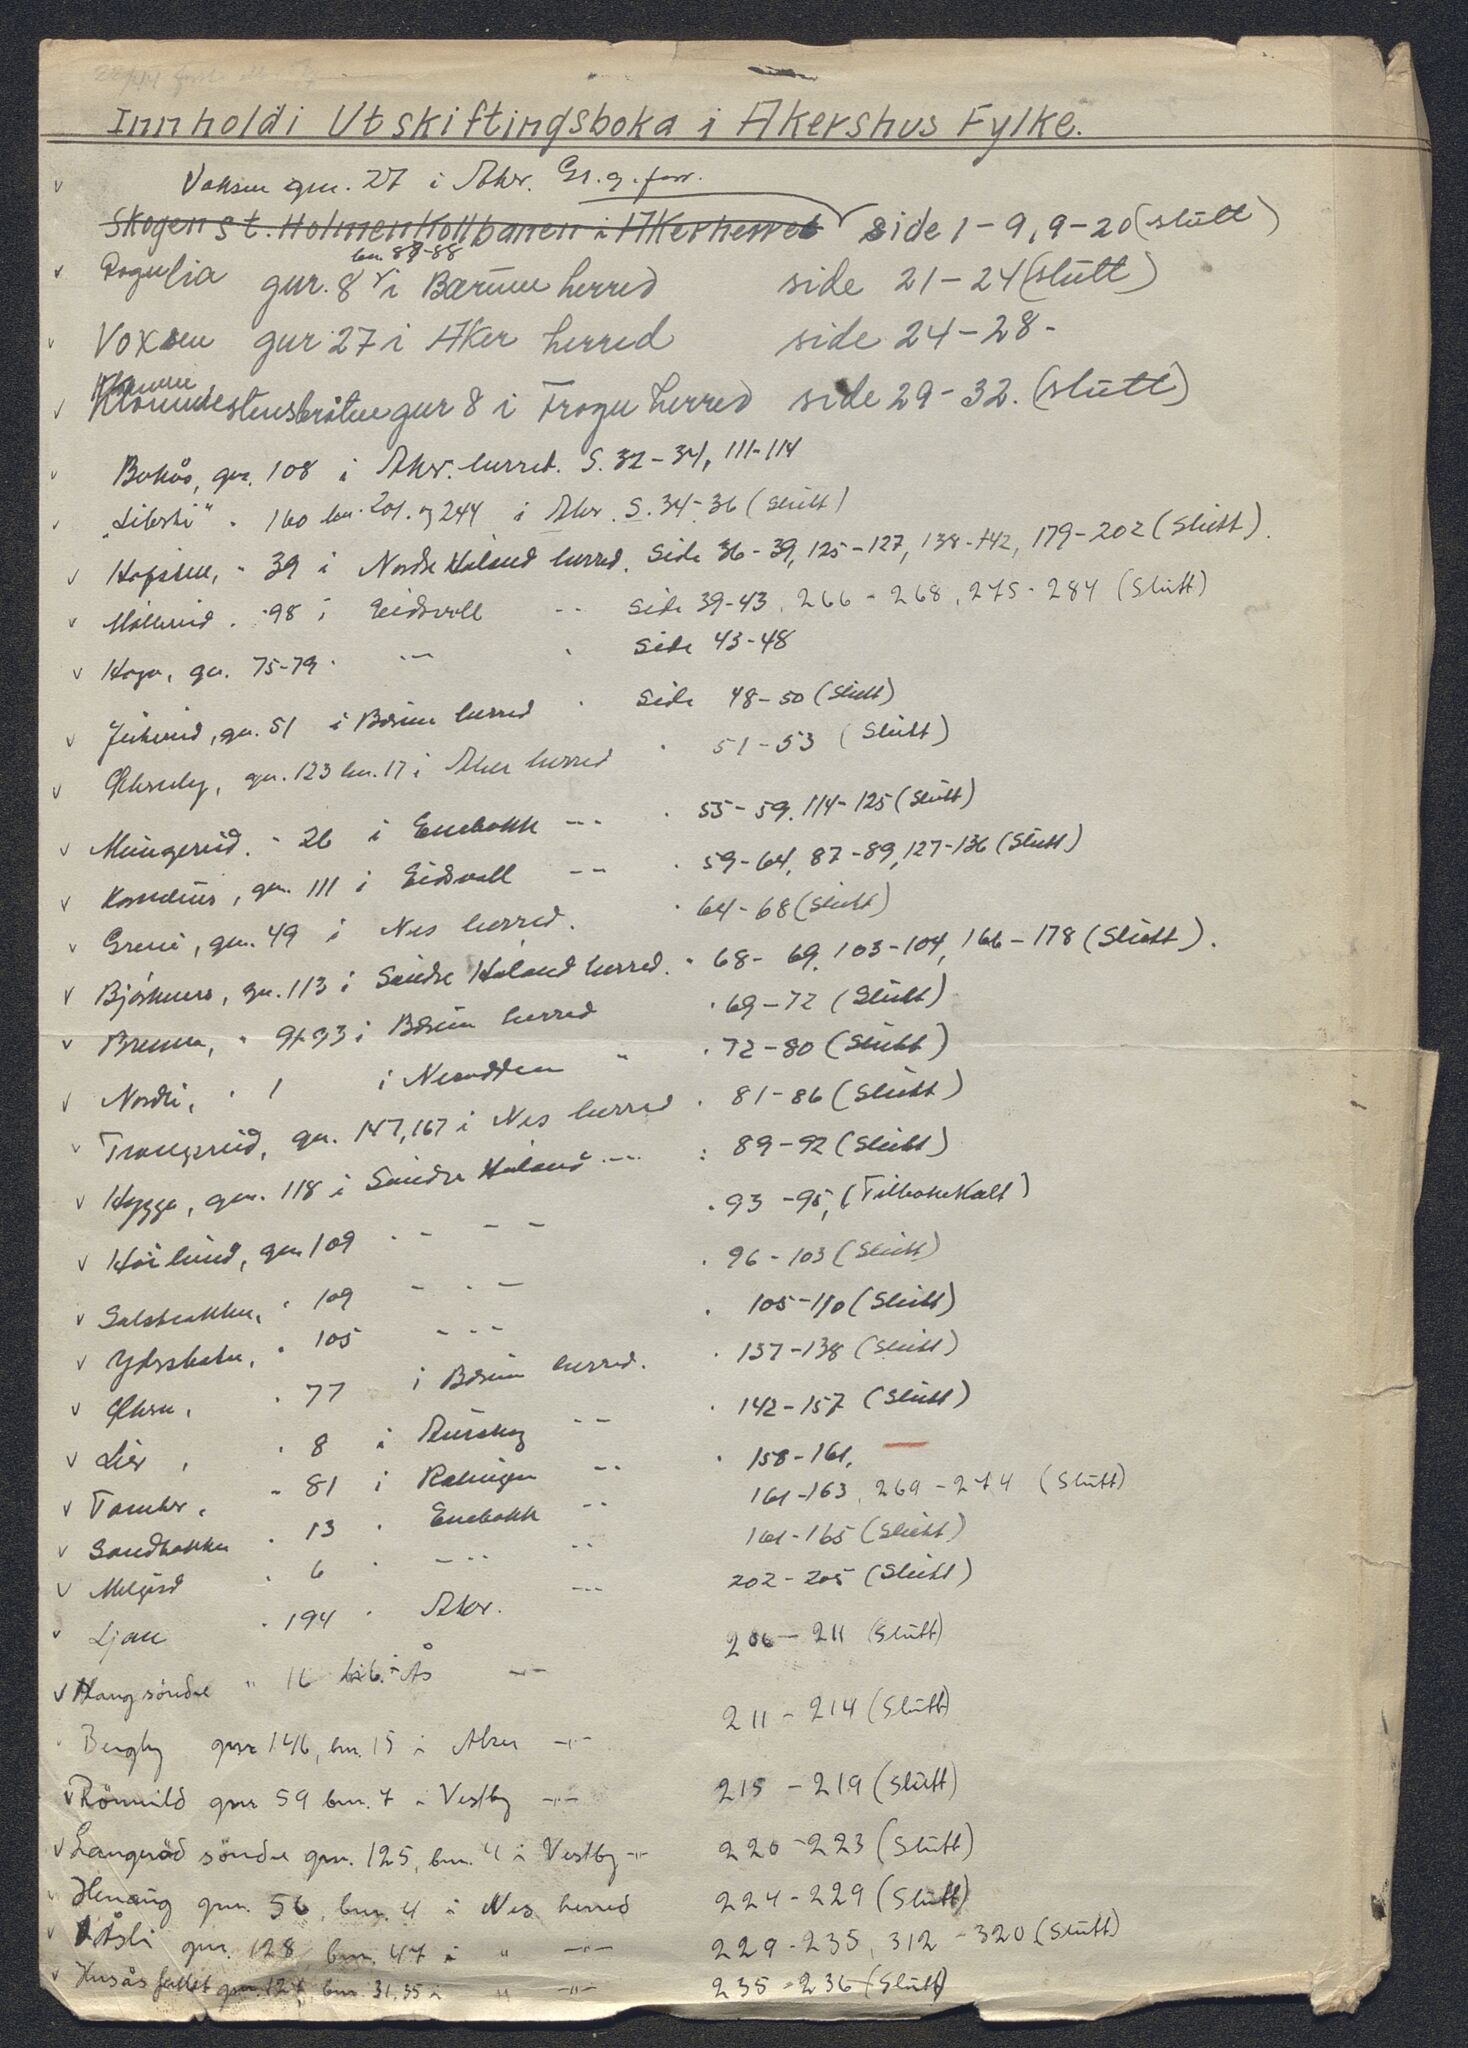 Innhold i Utskiftingsboka i Akershus Fylke.
v Voksen gnr. 27 i Aker. Gr. g. forr.
Skogen st. Holmenkollbanen i Aker herred side 1-9, 9-20 (slutt)
bn. 87-88
v Rognlia gnr. 8 i Bærum herred side 21-24 (slutt)
v Voxsen gnr 27 i Aker herred side 24-28-
v gnr 8 i Frogn herred side 29-32. (slutt)
v Bakås, gn. 108 i Aker herred. S. 32-34, 111-114
v "Libakk" - 160 bn. 201. og 244 i Aker S. 34-36 (Slutt)
v Hofsten, - 39 i Nordre Høland herred. Side 36-39, 125-127, 138-142, 179-202 (Slutt).
v Møllerud - 98 i Eidsvoll -- Side 39-43, 266-268, 275-284 (Slutt)
v Haga, gn. 75-79 - -- - Side 43-48
v gn. 51 i Bærum herred - Side 48-50 (Slutt)
v Økernby, gn. 123 bn. 17 i Aker herred - 51-53 (Slutt)
v Mangerud - 26 i Enebakk -- - 55-59, 114-125 (Slutt)
v gn. 111 i Eidsvoll -- - 59-64, 87-89, 127-136 (Slutt)
v Greni, gn. 49 i Nes herred. - 64-68 (Slutt)
v Bjørknes, gn. 113 i Søndre Høland herred. - 68-69, 103-104, 166-178 (Slutt).
v - 93 i Bærum herred - 69-72 (Slutt)
v Nordli, - 1 i Nesodden " - 72-80 (Slutt)
v Trangsrud, gn. 147, 167 i Nes herred - 81-86 (Slutt)
v Hygga, gn. 118 i Søndre Høland -- : 89-92 (Slutt)
v gn 109 - - - - - 93-95, (Tilbakekalt)
v - 109 - - - - 96-103 (Slutt)
v - 105 - - - - 105-110 (Slutt)
v - 77 i Bærum herred. - 137-138 (Slutt)
v Lier, - 8 i Aurskog -- - 142-157 (Slutt)
v - 81 i Rælingen -- - 158-161,
v Sandbakken - 13 - Enebakk -- 161-163, 269-274 (Slutt)
v Melgård - 6 - - -- -- 161-165 (Slutt)
v Ljan - 194 - Aker. --- 202-205 (Slutt)
v Haug søndre " 16 i Ås -"- 206-211 (Slutt)
v Bergby gnr 146, bn. 15 i Aker -"- 211-214 (Slutt)
v gnr 59 bnr. 7 i Vestby -"- 215-219 (Slutt)
v Langerød søndre gnr. 125, bnr. 4 i Vestby -"- 220-223 (Slutt)
v Henaug gnr. 56, bnr. 4 i Nes herred 224-229 (Slutt)
v Åsli gnr. 128, bnr. 47 i " -"- 229-235, 312-320 (Slutt)
v Husåsfallet gnr. 127, bnr. 31, 35 i " -"- 235-236 (Slutt)